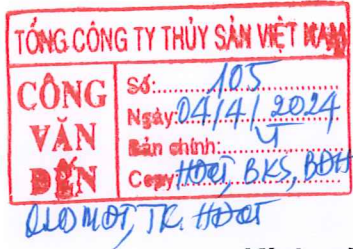 TỔNG CÔNG TY THỦY SẢN VIỆT NAM
CÔNG VĂN ĐẾN
Số: 105
Ngày: 04/4/2024
Bản chính: VT
Copy: HĐQT, BKS, BĐH
TK. HĐQT